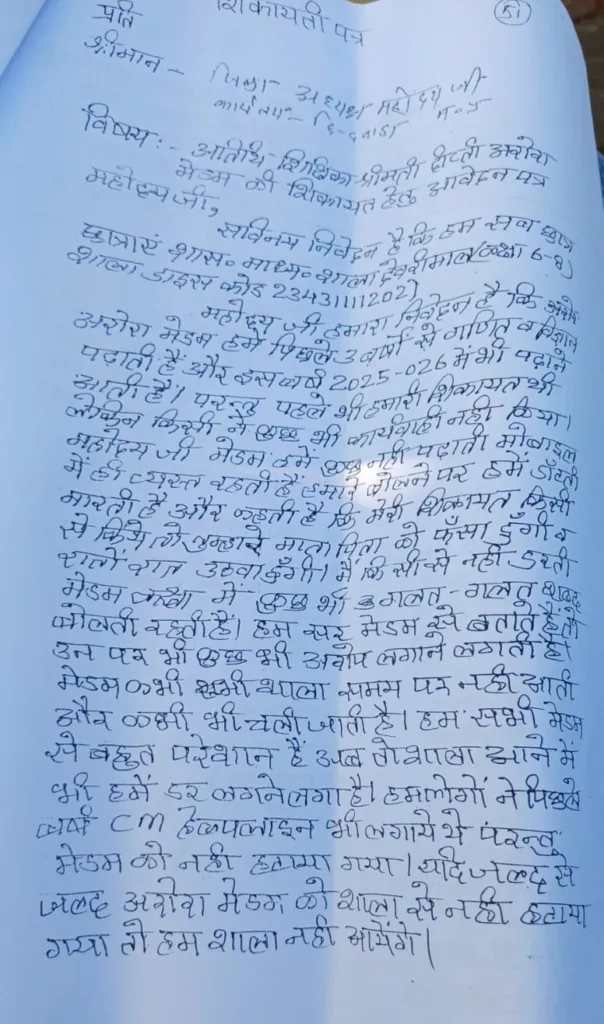 शिकायती पत्र
51
प्रति
श्रीमान - जिला अध्यक्ष महोदय जी
कार्यालय - म.प्र
विषय :- अतिथि शिक्षिका श्रीमती अरोरा
मेडम की शिकायत हेतु आवेदन पत्र
महोदय जी,
सविनय निवेदन है कि हम सब छात्र
छात्राएं शास० माध्य० शाला देवरीमाल (कक्षा 6-8)
शाला डाइस कोड 23431111202)
महोदय जी हमारा निवेदन है कि
अरोरा मेडम हमें पिछले 3 वर्षों से गणित व विज्ञान
पढ़ाती हैं और इस वर्ष 2025-026 में भी पढ़ाने
आती हैं। परन्तु पहले भी हमारी शिकायत थी
लेकिन किसी ने कुछ भी कार्यवाही नहीं किया।
महोदय जी मेडम हमें कुछ नहीं पढ़ाती मोबाइल
में ही व्यस्त रहती हैं हमारे बोलने पर हमें डाँटती
मारती है और कहती है कि मेरी शिकायत किसी
से किये तो तुम्हारे माता पिता को फँसा दुँगी व
रातों रात उठवा दुँगी। मैं किसी से नहीं डरती
मेडम कक्षा में कुछ भी गलत - गलत शब्द
बोलती रहती है। हम सर मेडम से बताते हैं तो
उन पर भी कुछ भी अरोप लगाने लगती हैं।
मेडम कभी भी शाला समय पर नहीं आती
और कभी भी चली जाती है। हम सभी मेडम
से बहुत परेशान हैं अब तो शाला आने में
भी हमें डर लगने लगा है। हमलोगों ने पिछले
वर्ष CM हेल्पलाइन भी लगाये थे परन्तु
मेडम को नहीं हटाया गया। यदि जल्द से
जल्द अरोरा मेडम को शाला से नहीं हटाया
गया तो हम शाला नहीं आयेंगे।